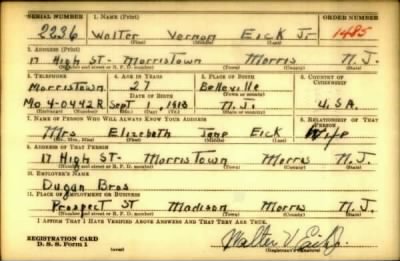 SERIAL NUMBER 1. NAME (Print) ORDER NUMBER
2236 Walter Vernon Eick Jr 1485
(First) (Middle) (Last)
2. ADDRESS (Print)
17 High St- Morristown Morris N.J.
(Number and street or R. F. D. number) (Town) (County) (State)
3. TELEPHONE 4. AGE IN YEARS 5. PLACE OF BIRTH 6. COUNTRY OF CITIZENSHIP
Morristown 27 Belleville
DATE OF BIRTH (Town or county)
Mo 4-0442R Sept 1, 1913 N.J. U.S.A.
(Exchange) (Number) (Mo.) (Day) (Yr.) (State or country)
7. NAME OF PERSON WHO WILL ALWAYS KNOW YOUR ADDRESS 8. RELATIONSHIP OF THAT PERSON
Mrs Elizabeth Jane Eick Wife
(Mr., Mrs., Miss) (First) (Middle) (Last)
9. ADDRESS OF THAT PERSON
17 High St- Morristown Morris N.J.
(Number and street or R. F. D. number) (Town) (County) (State)
10. EMPLOYER'S NAME
Dugan Bros
11. PLACE OF EMPLOYMENT OR BUSINESS
Prospect St Madison Morris N.J.
(Number and street or R. F. D. number) (Town) (County) (State)
I AFFIRM THAT I HAVE VERIFIED ABOVE ANSWERS AND THAT THEY ARE TRUE.
REGISTRATION CARD
D. S. S. Form 1 (over) Walter V Eick Jr.
(Registrant's signature)